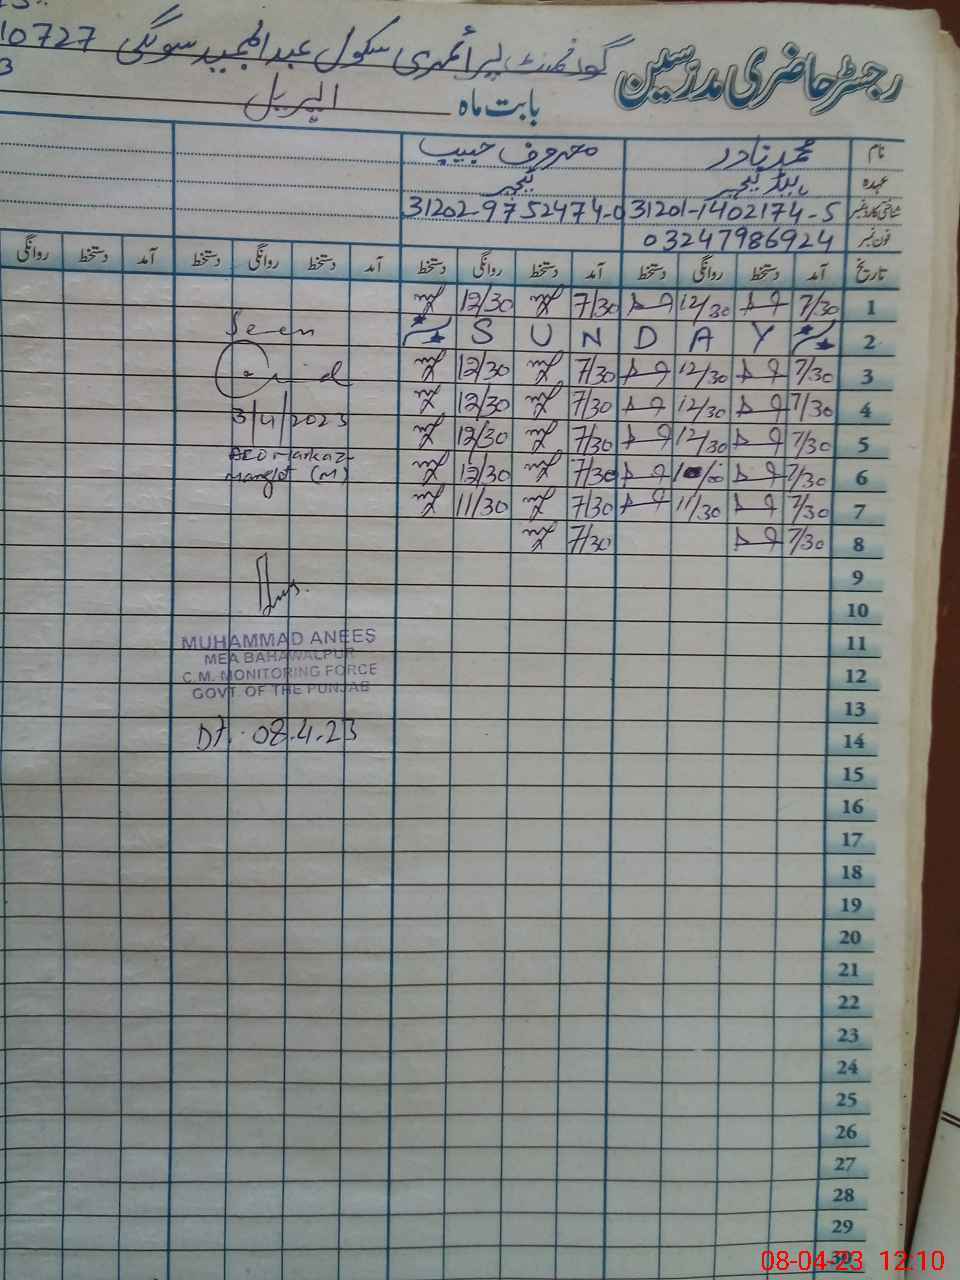 گورنمنٹ پرائمری سکول عبدالمجید سونگی 10727
رجسٹر حاضری مدرسین
3
بابت ماہ اپریل
نام محمد نادر معروف حبیب
عہدہ ہیڈ ٹیچر ٹیچر
شناختی کارڈ نمبر 31201-1402174-5 31202-9752474-0
فون نمبر 03247986924
تاریخ آمد دستخط روانگی دستخط آمد دستخط روانگی دستخط آمد دستخط روانگی دستخط آمد دستخط روانگی
1 7/30 12/30 7/30 12/30
2 S U N D A Y
3 7/30 12/30 7/30 12/30
4 7/30 12/30 7/30 12/30
5 7/30 12/30 7/30 12/30
6 7/30 7/30 12/30
7 7/30 11/30 7/30 11/30
8 7/30 7/30
9
10
11
12
13
14
15
16
17
18
19
20
21
22
23
24
25
26
27
28
29
30
Seen
3/4/2023
AEO Markaz
(M)
MUHAMMAD ANEES
MEA BAHAWALPUR
C.M. MONITORING FORCE
GOVT. OF THE PUNJAB
Dt. 08.4.23
08-04-23 12:10